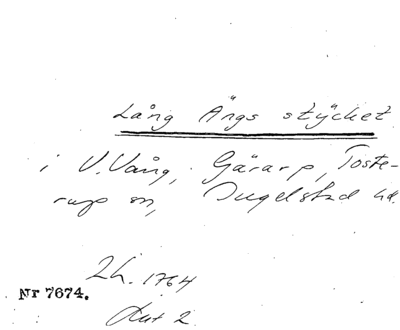 Lång Ängs stycket
i V. Vång, Gärarp, Toste-
rup sn, Ingelstad hd.
Lh. 1764
Nr 7674.
Akt 2